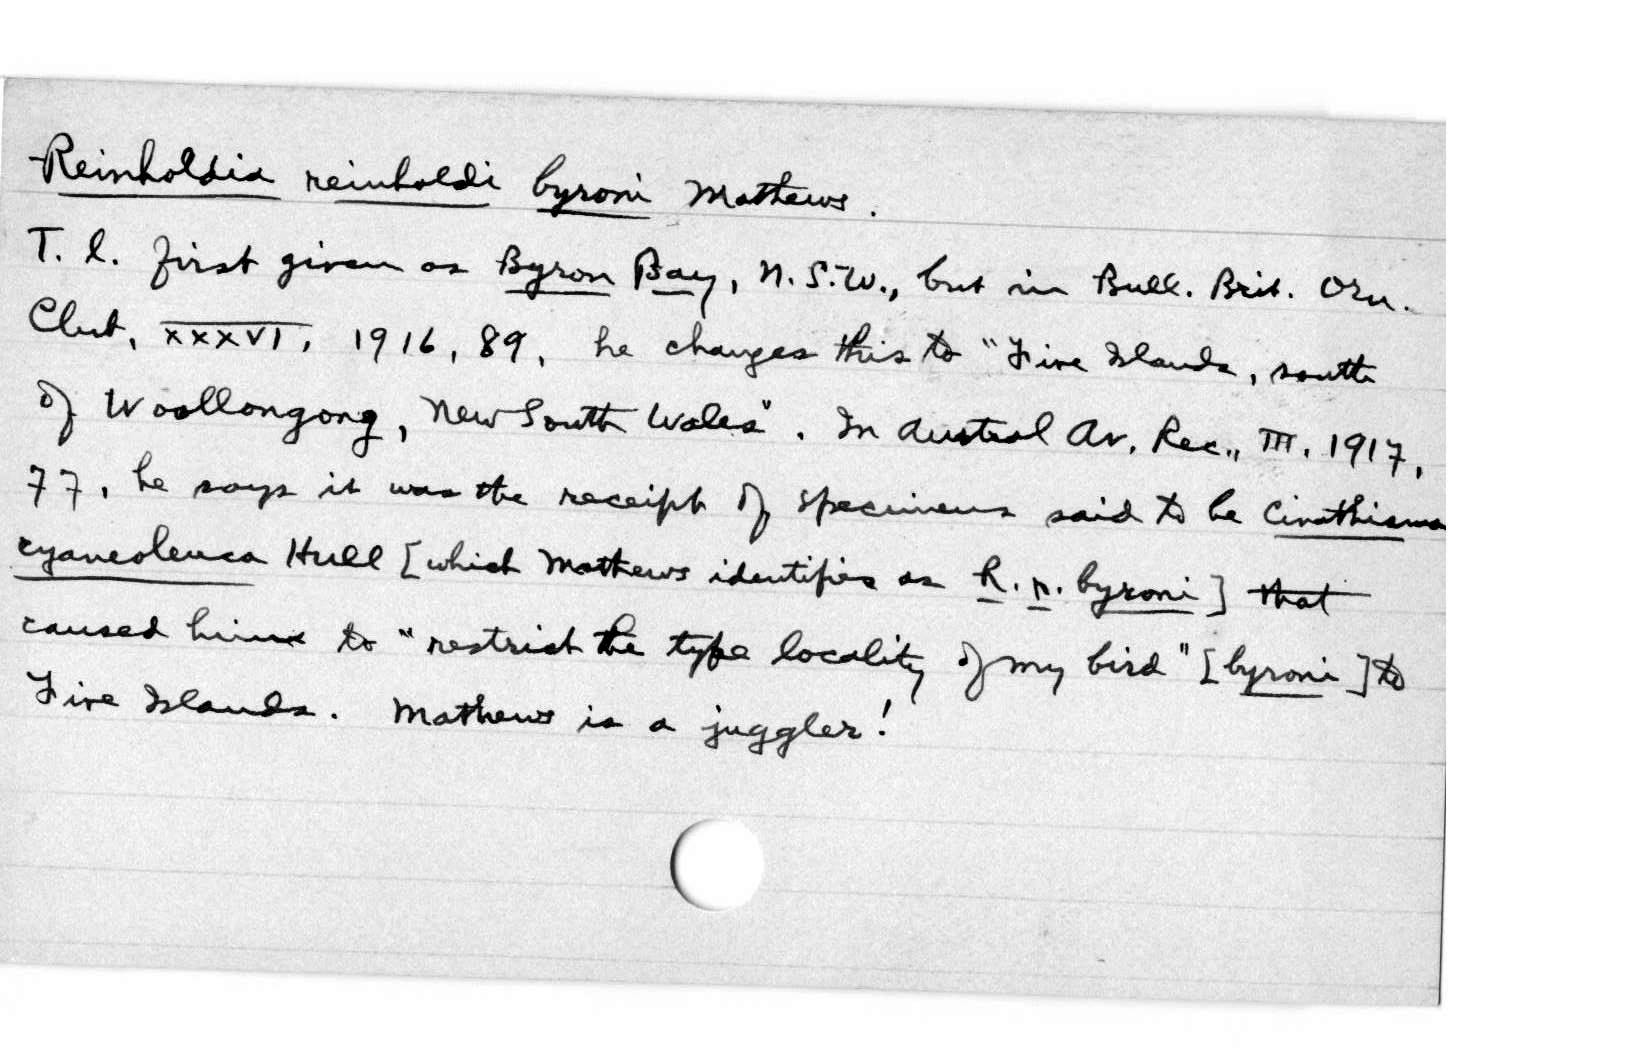 Reinholdia reinholdi byroni Mathews.
T. l. first given as Byron Bay, N.S.W., but in Bull. Brit. Orn.
Club, XXXVI, 1916, 89, he changes this to "Five Islands, south
of Woollongong, New South Wales". In Austral Av. Rec., III, 1917,
77, he says it was the receipt of specimens said to be Cinathisma
cyaneoleuca Hull [which Mathews identifies as R. r. byroni] that
caused him to "restrict the type locality of my bird" [byroni] to
Five Islands. Mathews is a juggler!